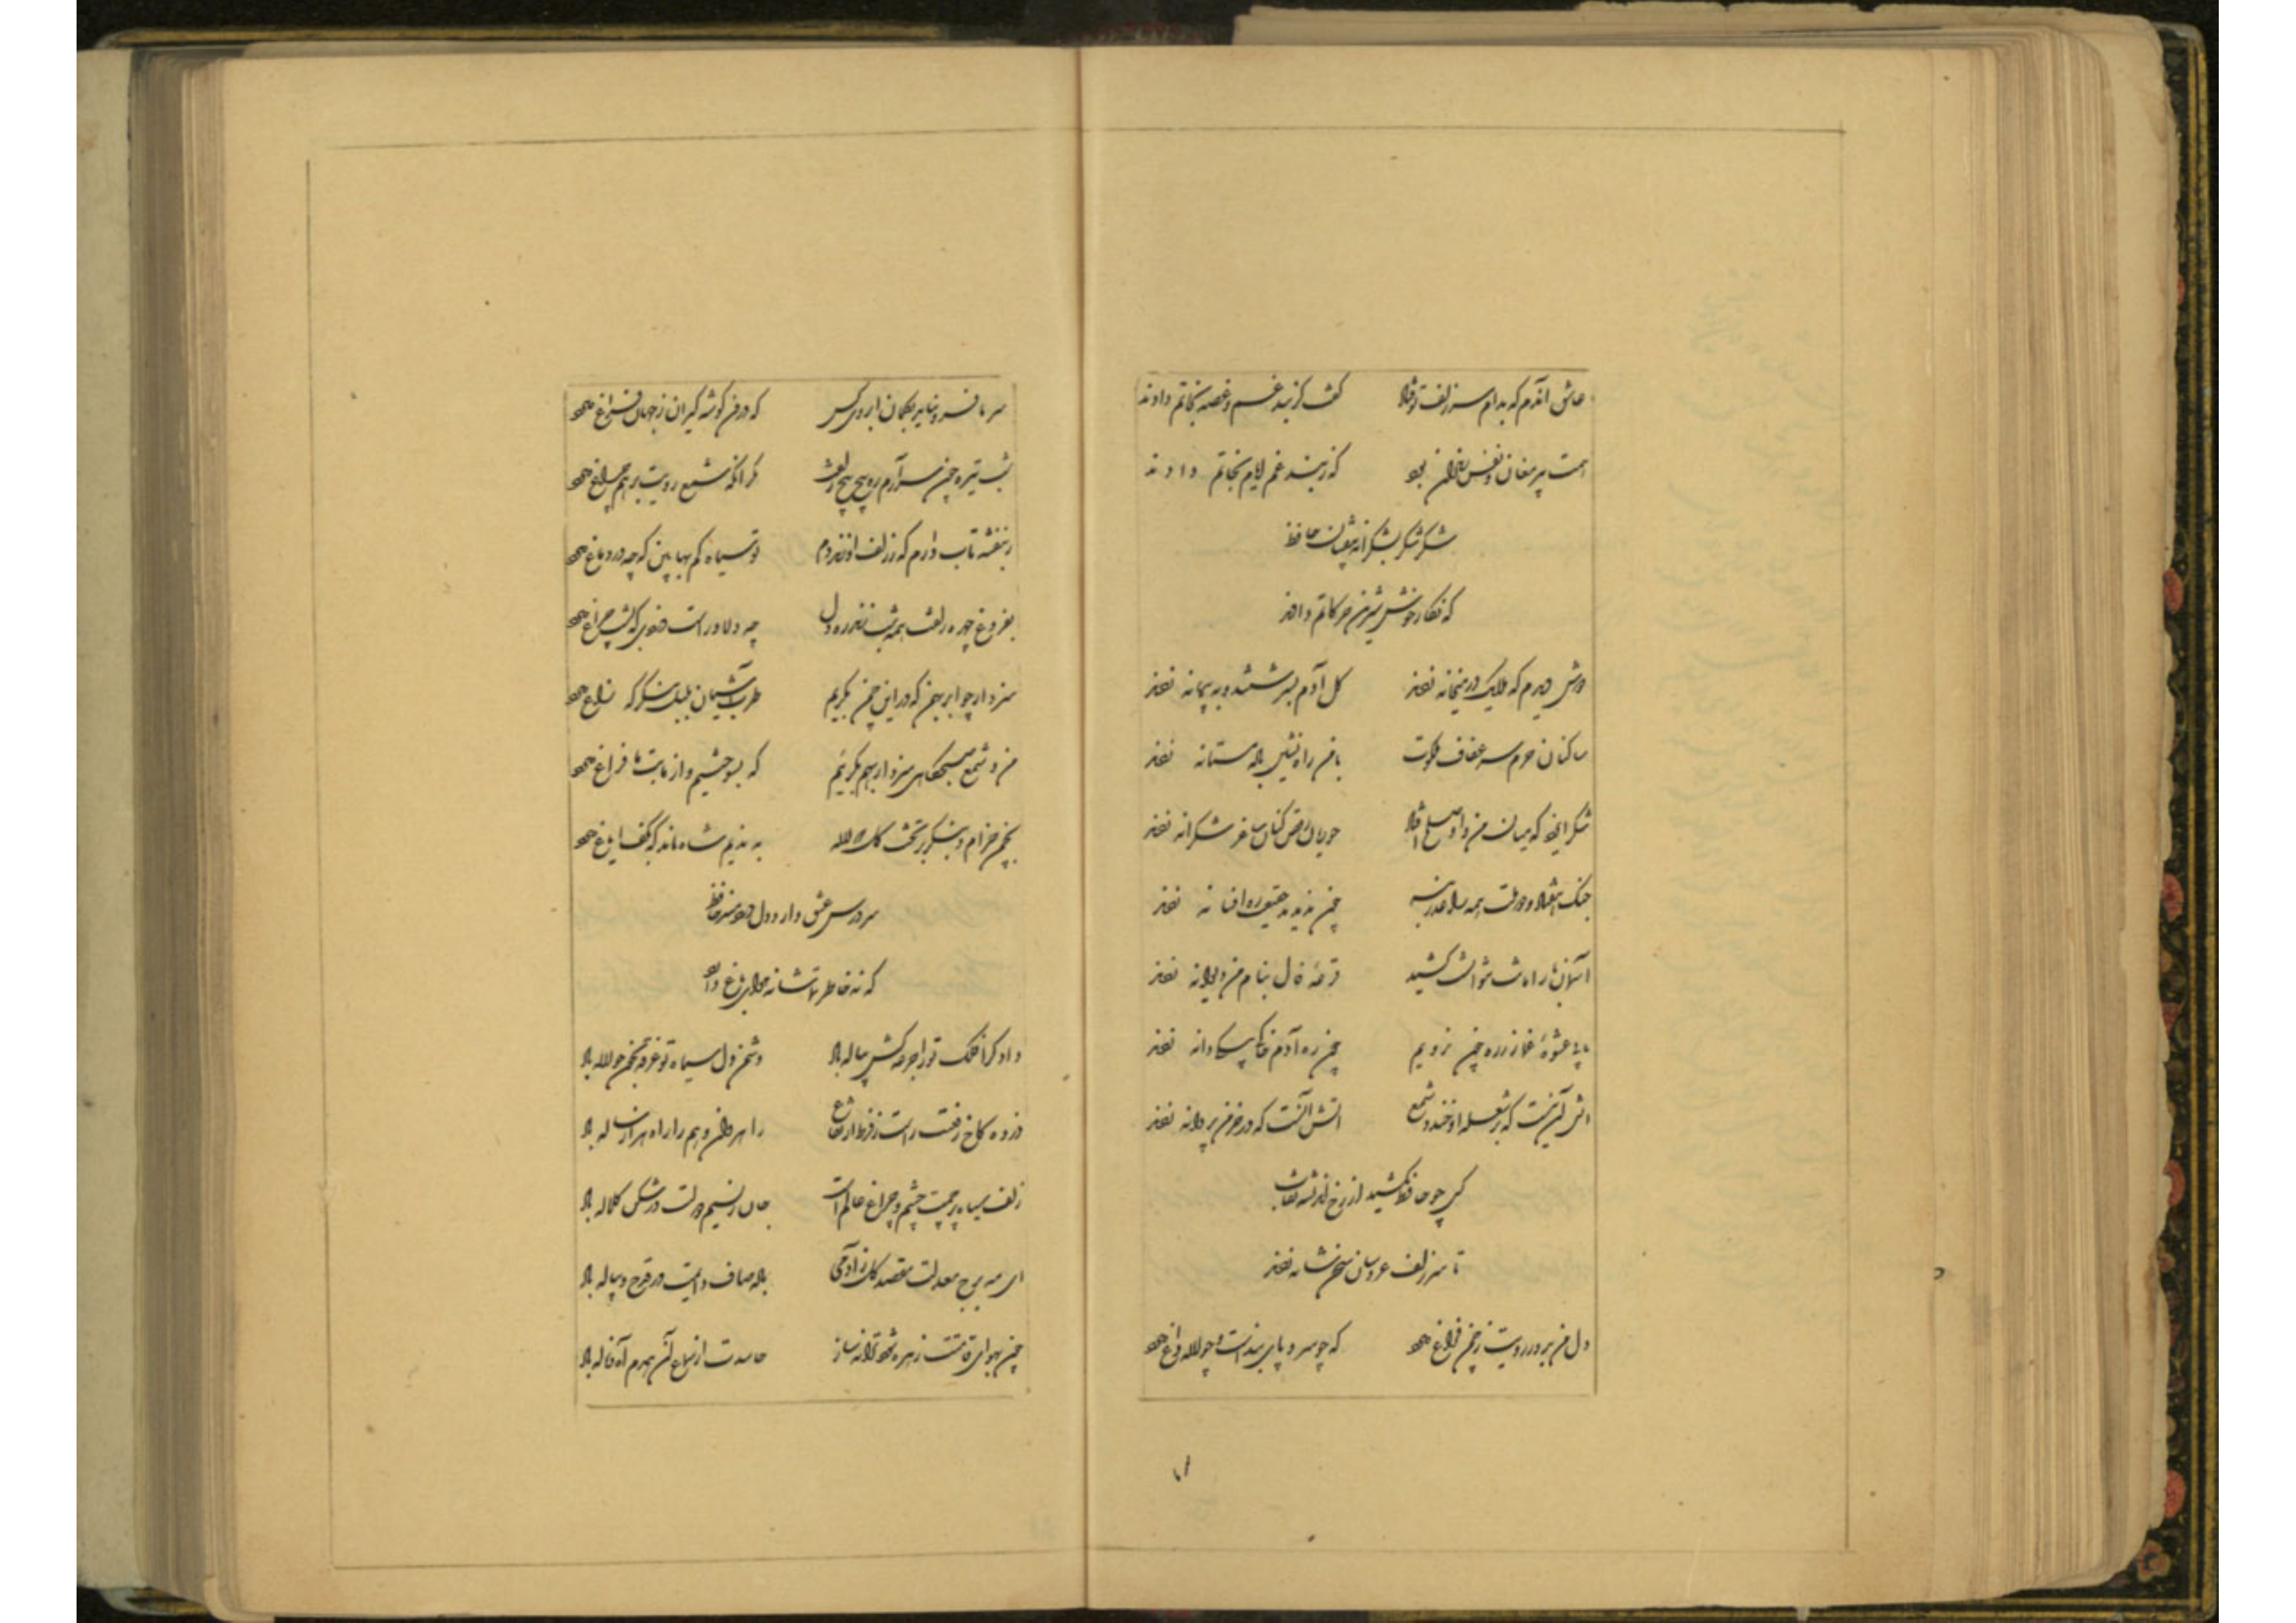 عاشق آندم که بدام سر زلف تو فتاد گفت کز بند غم و غصه نجاتم دادند
همت پیر مغان و نفس رندان بود که ز بند غم ایام نجاتم دادند
شکر شکر بشکرانه بیفشان حافظ
که نگار خوش شیرین حرکاتم دادند
دوش دیدم که ملایک در میخانه زدند گل آدم بسرشتند و به پیمانه زدند
ساکنان حرم ستر عفاف ملکوت با من راه نشین باده مستانه زدند
شکر ایزد که میان من و او صلح افتاد حوریان رقص کنان ساغر شکرانه زدند
جنک هفتاد و دو ملت همه را عذر بنه چون ندیدند حقیقت ره افسانه زدند
آسمان بار امانت نتوانست کشید قرعه فال بنام من دیوانه زدند
ما به
چون ره آدم خاکی بیکی دانه زدند
آتش آن نیست که بر شعله او خندد شمع آتش آنست که در خرمن پروانه زدند
کس چو حافظ نکشید از رخ اندیشه نقاب
تا سر زلف عروسان سخن شانه زدند
دل من بدور رویت ز چمن فراغ دارد که چو سرو پای بندست و چو لاله داغ دارد
۷۱
سر ما فرو نیاید بکمان ابروی کس که درون گوشه گیران ز جهان فراغ دارد
شب تیره چون سر آرم ره پیچ پیچ زلفت مگر آنکه شمع رویت برهم چراغ دارد
ز بنفشه تاب دارم که ز زلف او زند دم تو سیاه کم بها بین که چه در دماغ دارد
بفروغ چهره زلفت همه شب زند ره دل چه دلاور است دزدی که بشب چراغ دارد
سزد ار چو ابر بهمن که در این چمن بگریم طرب آشیان بلبل بنگر که زاغ دارد
من و شمع صبحگاهی سزد ار بهم بگرییم که بسوختیم و از ما بت ما فراغ دارد
بچمن خرام و بنگر بر تخت گل که لاله به ندیم شاه ماند که بکف ایاغ دارد
سر درس عشق دارد دل دردمند حافظ
که نه خاطر تماشا نه هوای باغ دارد
دادگرا فلک تو را جرعه کش پیاله باد دشمن دل سیاه تو غرقه بخون چو لاله باد
ذروه کاخ رفعتت راست ز فرط ارتفاع راهروان وهم را راه هزار ساله باد
زلف سیاه پرچمت چشم و چراغ عالم است جان ز نسیم دولتت در شکن کلاله باد
ای مه برج معدلت مقصد کل ز آدمی باده صاف دایمت در قدح و پیاله باد
چون بهوای قامتت زهره شود ترانه ساز حاسدت از سماع آن همدم آه و ناله باد